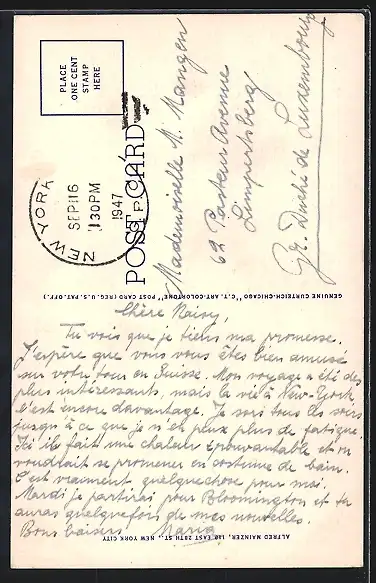 PLACE
ONE CENT
STAMP
HERE
NEW YORK
SEP 16
1130 PM
1947
POST CARD
Mademoiselle N. Mangen
62 Pasteur Avenue
Limpertsberg
Gr. Duché de Luxembourg
GENUINE CURTEICH-CHICAGO "C.T. ART-COLORTONE" POST CARD (REG. U.S. PAT. OFF.)
Chère Naisy,
Tu vois que je tiens ma promesse.
J'espère que vous vous êtes bien amusé
sur votre tour en Suisse. Mon voyage a été des
plus intéressants, mais la vie à New-York
l'est encore davantage. Je sors tous les soirs
jusqu'à ce que je n'en peux plus de fatigue.
Ici il fait une chaleur épouvantable et on
voudrait se promener en costume de bain.
C'est vraiment quelquechose pour moi.
Mardi je partirai pour Bloomington et tu
auras quelquefois de mes nouvelles.
Bons baisers Maria
ALFRED MAINZER, 118 EAST 28TH ST., NEW YORK CITY